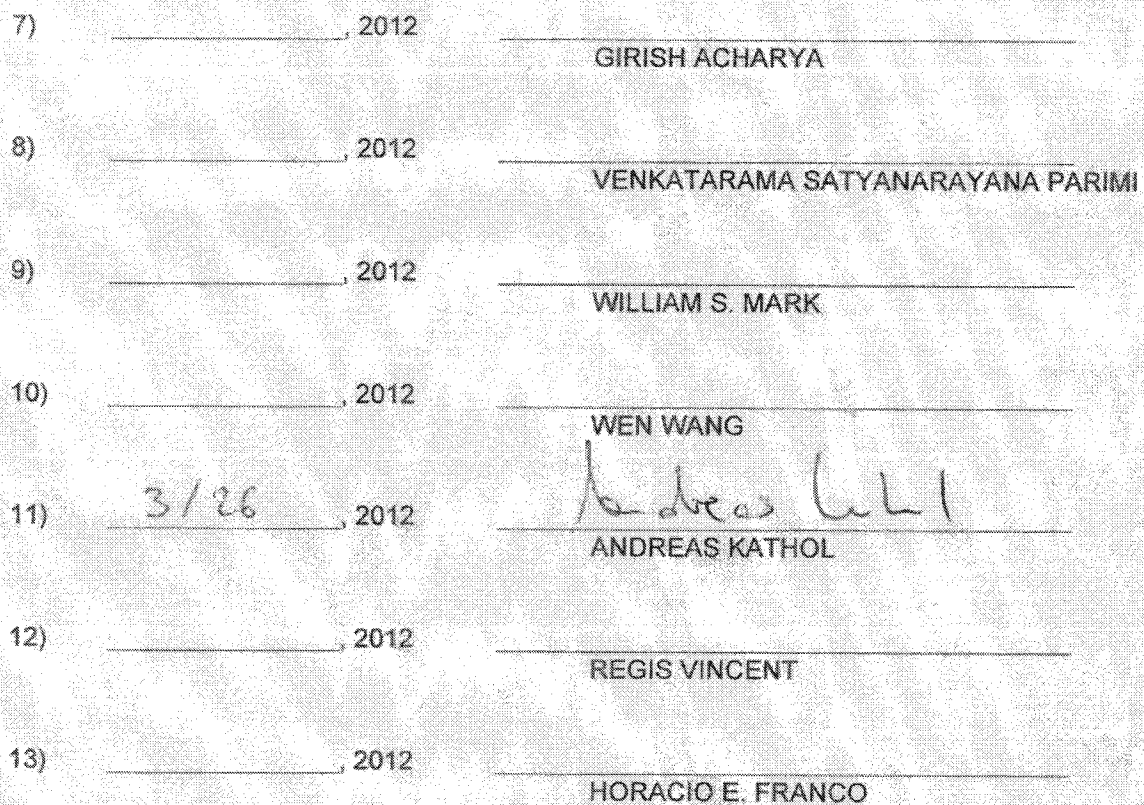 7) , 2012
GIRISH ACHARYA
8) , 2012
VENKATARAMA SATYANARAYANA PARIMI
9) , 2012
WILLIAM S. MARK
10) , 2012
WEN WANG
11) 3/26 , 2012 Andreas Kathol
ANDREAS KATHOL
12) , 2012
REGIS VINCENT
13) , 2012
HORACIO E. FRANCO